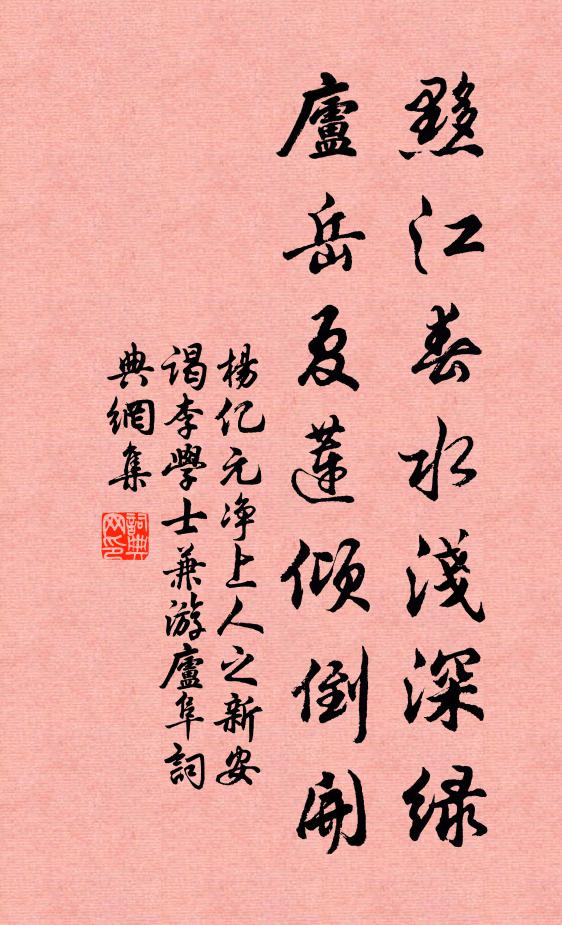 黟江春水浅深緑
廬岳夏蓮傾倒開
楊亿元净上人之新安
谒李學士兼游廬阜詞
典網集
詞典網印